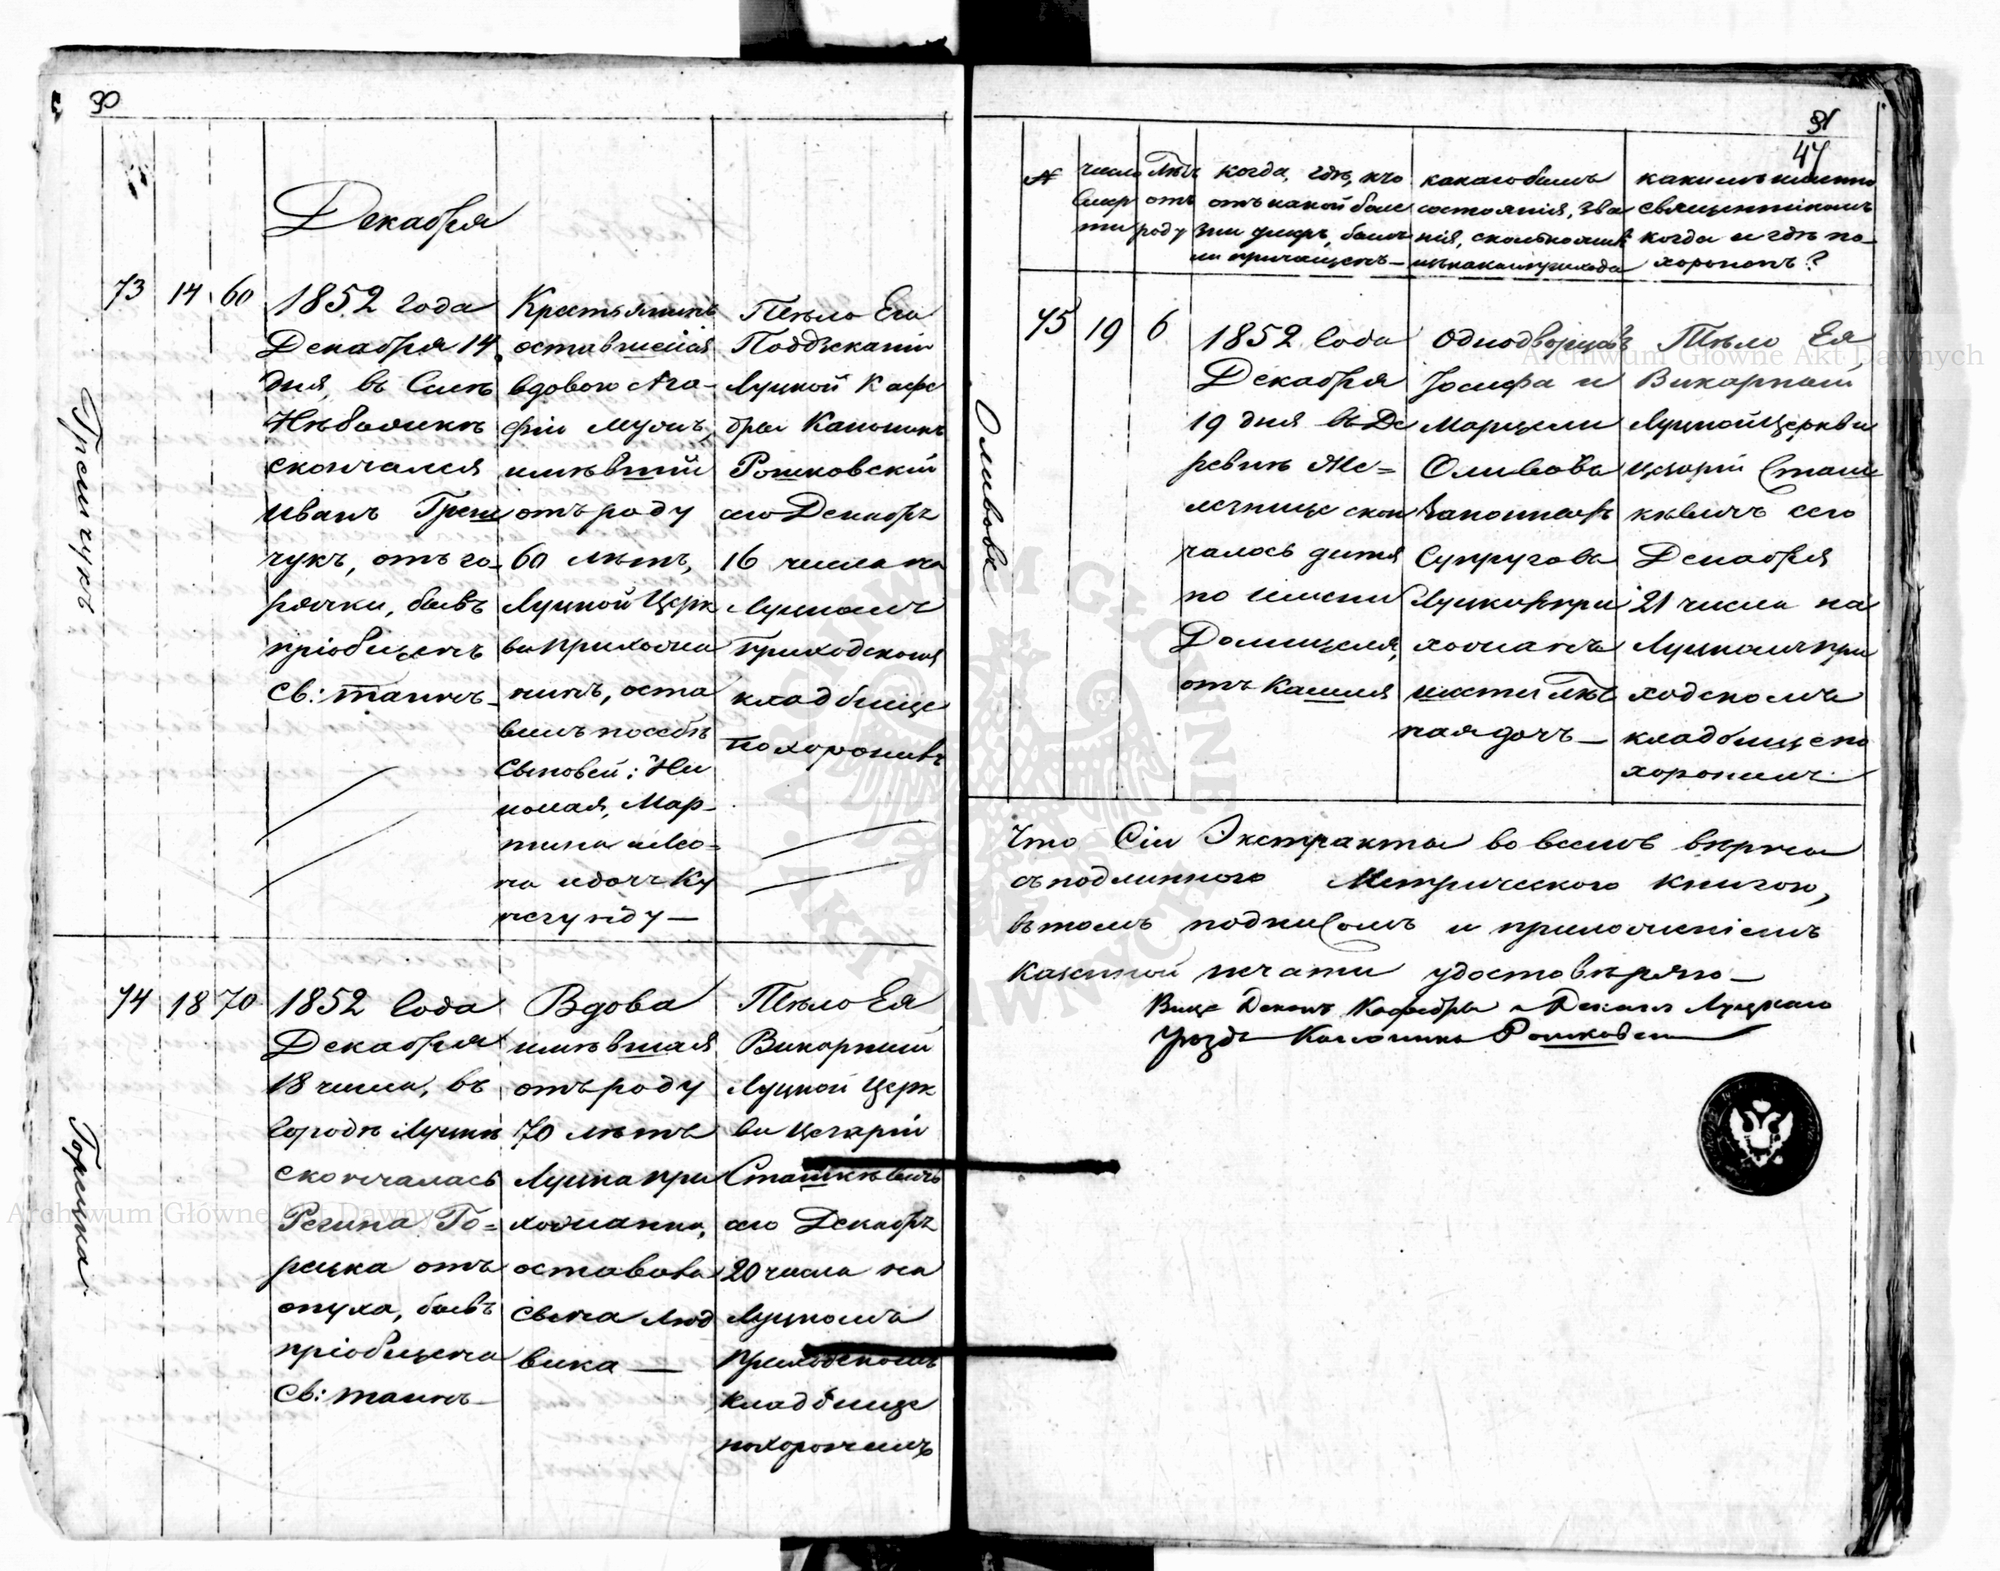 30
Декабря
Гремчукъ
73
14
60
1852 года
Декабря 14
дня, въ Селѣ
скончался
Иванъ Греш
чукъ, отъ го
рячки, бывъ
пріобщенъ
Св: таинъ
Крестьянинъ
оставшейся
вдовою Ага-
фіи мужъ,
имѣвшій
отъ роду
60 лѣтъ,
Луцкой Церк
ви прихожа
нинъ, оста
вилъ по себѣ
Сыновей: Ни
колая, Мар-
тина и Ио-
на и дочь Ку
негунду —
Тѣло Его
Луцкой Кафе
дры Каноникъ
Рошковскій
сего Декабря
16 числа на
Луцкомъ
Приходскомъ
кладбище
похоронилъ
Горецка
74
18
70
1852 Года
Декабря
18 числа, въ
Городѣ Луцкѣ
скончалась
Регина Го-
рецка отъ
опуха, бывъ
пріобщена
Св: таинъ
Вдова
имѣвшая
отъ роду
70 лѣтъ
Луцка при
хожанка,
оставова
сына Люд
вика —
Тѣло Ея
Викарный
Луцкой Церк
ви Цезарій
Сташкѣвичъ
сего Декабря
20 числа на
Луцкомъ
Приходскомъ
Кладбище
похоронилъ
31
47
№
число
Смер
ти
Лѣтъ
отъ
роду
когда, гдѣ, кто
отъ какой болѣ
зни умеръ, былъ
ли причащенъ —
какаго былъ
состоянія, зва
нія, сколько лѣтъ
какимъ именно
священникомъ
когда и гдѣ по-
хороненъ?
Оливова
75
19
6
1852 Года
Декабря
19 дня въ Де
ревнѣ Же-
скон
чалось дитя
по имени
Домицеля,
отъ Кашля
Однодворцовъ
Іосифа и
Марцели
Оливовъ
Законныхъ
Супруговъ
Луцкой при
хожанъ
шести лѣт
няя дочь —
Тѣло Ея
Викарный
Луцкой Церкви
Цезарій Сташ
кѣвичъ сего
Декабря
21 числа на
Луцкомъ при
ходскомъ
кладбище по
хоронилъ
Что Сіи Экстракта во всемъ вѣрны
съ подлинного Метрическою книгою,
въ томъ подписомъ и приложеніемъ
Казенной печати удостовѣряю —
Вице Деканъ Кафедры и Деканъ Луцкаго
Уѣзда Каноникъ Рошковски
Archiwum Główne Akt Dawnych
Archiwum Główne Akt Dawnych
ARCHIWUM GŁÓWNE AKT DAWNYCH